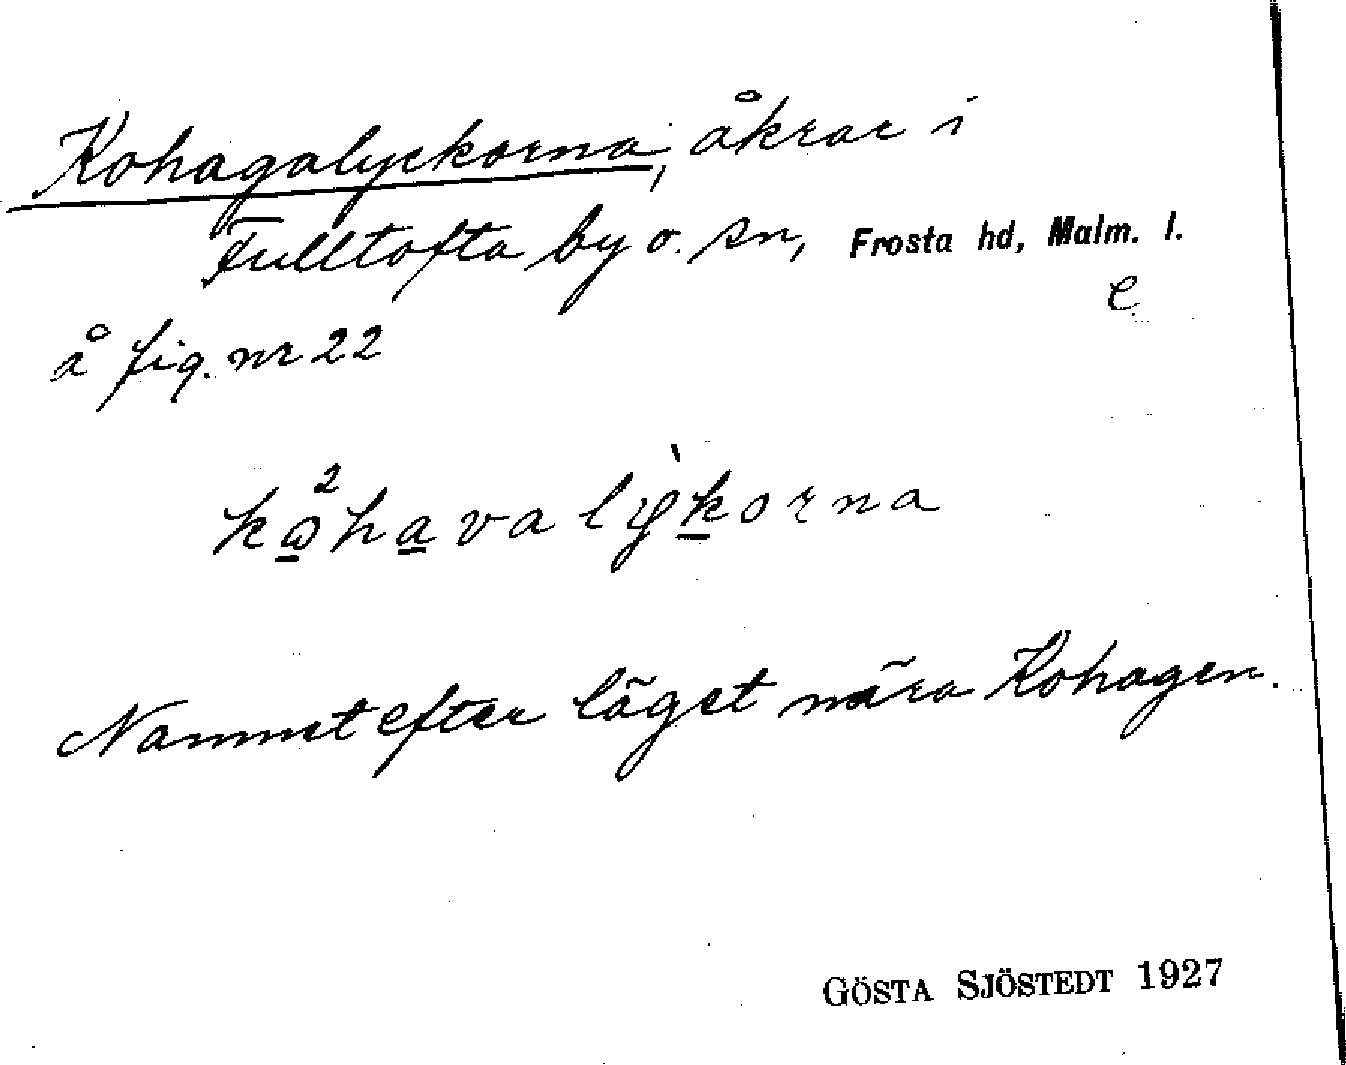 Kohagalyckorna, åkrar i
Fulltofta by o. sn, Frosta hd, Malm. l.
e
å fig. nr 22
Namnet efter läget nära Kohagen.
GÖSTA SJÖSTEDT 1927